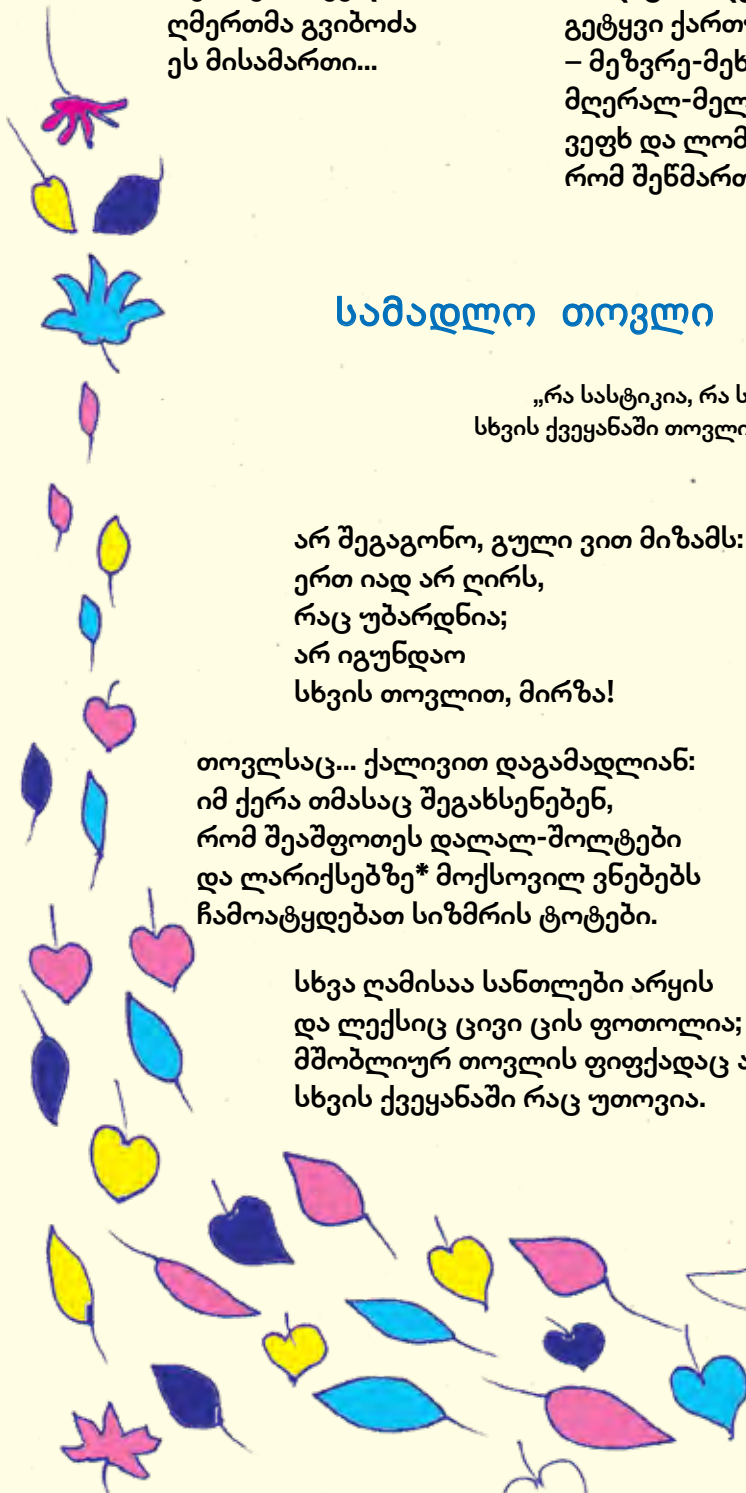 ღმერთმა გვიბოძა
ეს მისამართი...
გეტყვი
– მეზვრე-
მღერალ-
ვეფხ და
რომ
სამადლო თოვლი
„რა სასტიკია, რა
სხვის ქვეყანაში
არ შეგაგონო, გული ვით მიზამს:
ერთ იად არ ღირს,
რაც უბარდნია;
არ იგუნდაო
სხვის თოვლით, მირზა!
თოვლსაც... ქალივით დაგამადლიან:
იმ ქერა თმასაც შეგახსენებენ,
რომ შეაშფოთეს დალალ-შოლტები
და ლარიქსებზე* მოქსოვილ ვნებებს
ჩამოატყდებათ სიზმრის ტოტები.
სხვა ღამისაა სანთლები არყის
და ლექსიც ცივი ცის ფოთოლია;
მშობლიურ თოვლის ფიფქადაც
სხვის ქვეყანაში რაც უთოვია.